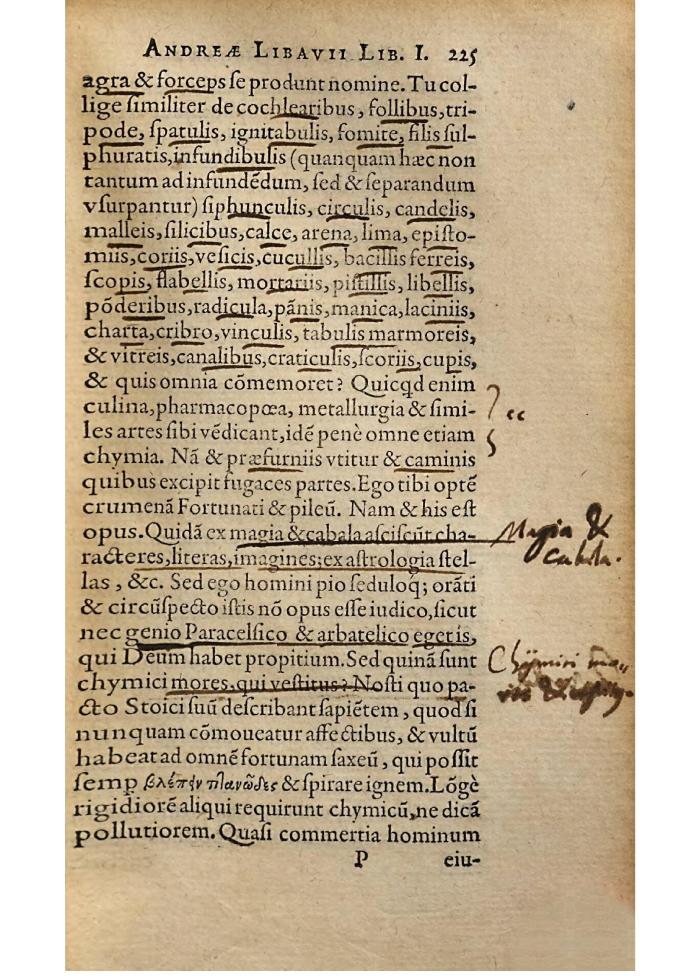 ANDREÆ LIBAVII LIB. I. 225
agra & forceps ſe produnt nomine. Tu col-
lige ſimiliter de cochlearibus, follibus, tri-
pode, ſpatulis, ignitabulis, fomite, filis ſul-
phuratis, infundibulis (quanquam hæc non
tantum ad infundēdum, ſed & ſeparandum
vſurpantur) ſiphunculis, circulis, candelis,
malleis, ſilicibus, calce, arena, lima, epiſto-
miis, coriis, veſicis, cucullis, bacillis ferreis,
ſcopis, flabellis, mortariis, piſtillis, libellis,
põderibus, radicula, pãnis, manica, laciniis,
charta, cribro, vinculis, tabulis marmoreis,
& vitreis, canalibus, craticulis, ſcoriis, cupis,
& quis omnia cõmemoret? Quicqd enim
culina, pharmacopœa, metallurgia & ſimi-
les artes ſibi vēdicant, idē penè omne etiam
chymia. Nã & præfurniis vtitur & caminis
quibus excipit fugaces partes. Ego tibi optē
crumenã Fortunati & pileũ. Nam & his eſt
opus. Quidã ex magia & cabala aſciſcũt cha-
racteres, literas, imagines; ex aſtrologia ſtel-
las, &c. Sed ego homini pio ſeduloq; orãti
& circũſpecto iſtis nõ opus eſſe iudico, ſicut
nec genio Paracelſico & arbatelico eget is,
qui Deum habet propitium. Sed quinã ſunt
chymici mores, qui veſtitus? Noſti quo pa-
cto Stoici ſuũ deſcribant ſapiētem, quod ſi
nunquam cõmoueatur affectibus, & vultũ
habeat ad omnē fortunam ſaxeũ, qui poſſit
ſemp βλέπειν πλανῶδες & ſpirare ignem. Lõgè
rigidiorē aliqui requirunt chymicũ, ne dicã
pollutiorem. Quaſi commertia hominum
P eiu-
Magia &
cabala.
Chÿmici